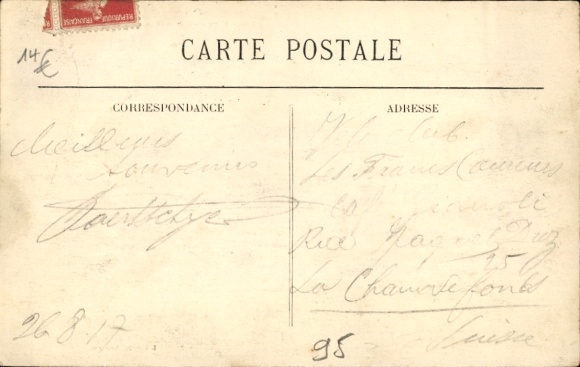 REPUBLIQUE FRANÇAISE
14€
CARTE POSTALE
CORRESPONDANCE
Meilleurs
souvenirs
26.8.17
ADRESSE
Les Francs Coureurs
Rue Jaquet Droz
25
La Chaux de fonds
Suisse
95